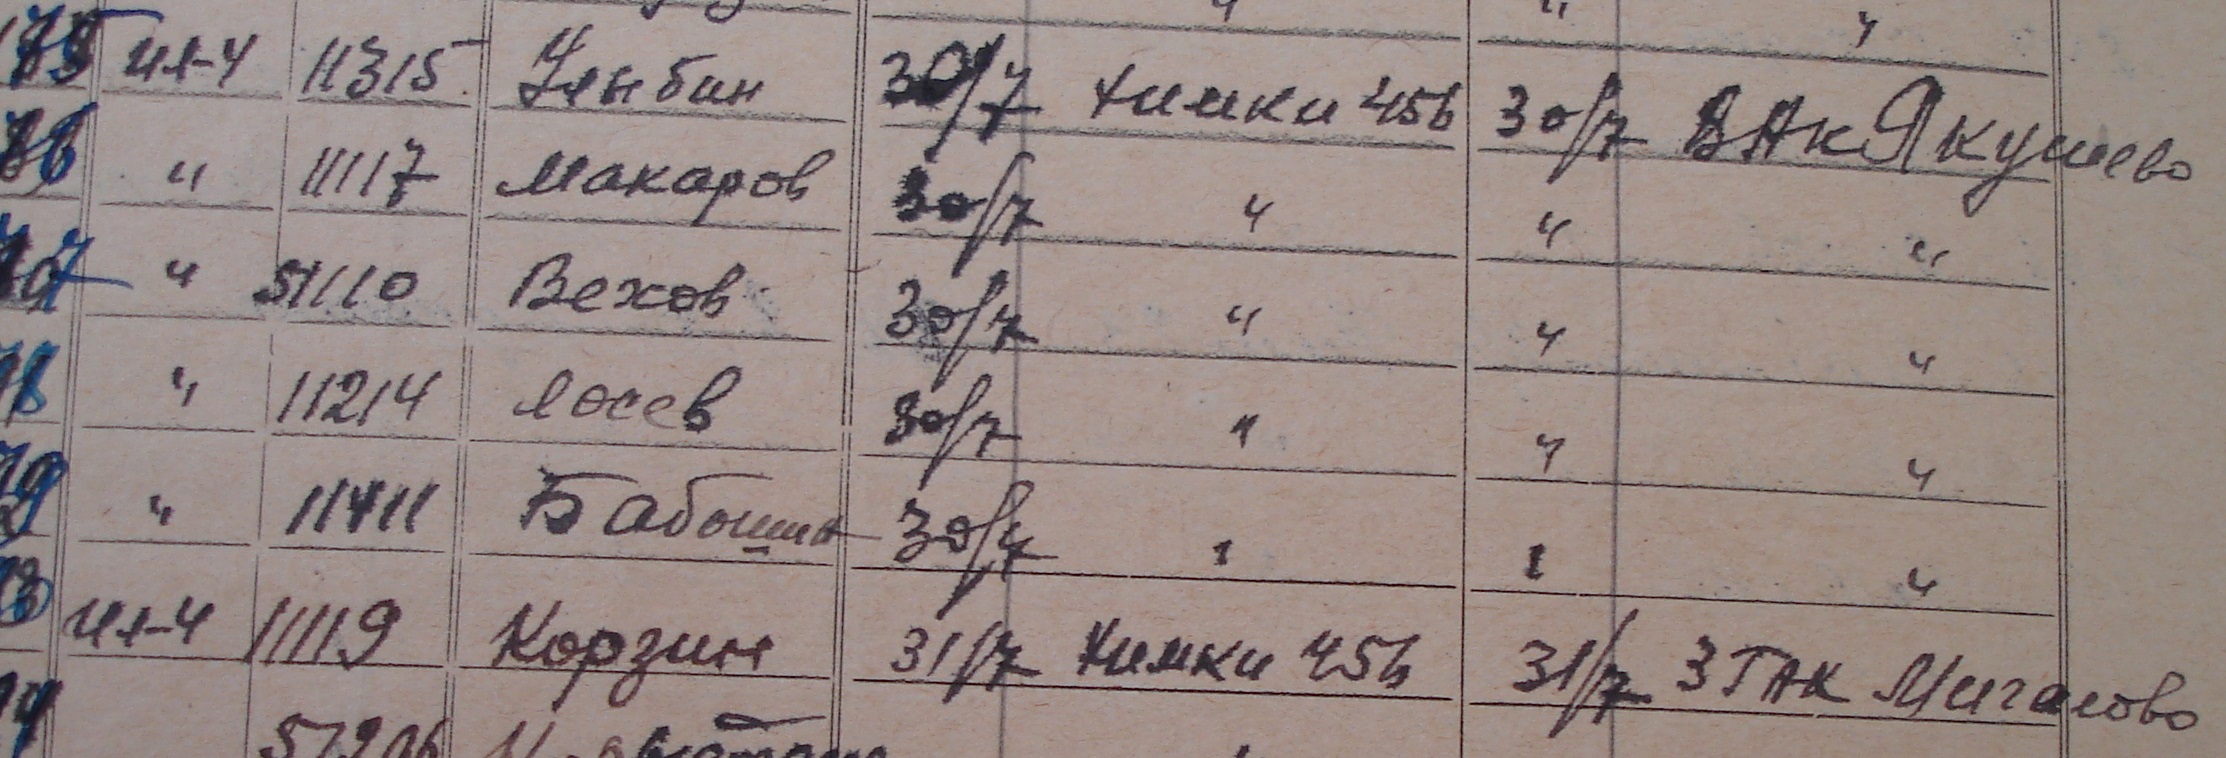 " " "
75 Ил-4 11315 Улыбин 30/7 Химки 456 30/7 ВАК Якушево
76 " 11117 Макаров 30/7 " " "
" 51110 Вехов 30/7 " " "
78 " 11214 Лосев 30/7 " " "
79 " 11411 Бабошин 30/7 " " "
Ил-4 11119 Корзин 31/7 Химки 456 31/7 3 ГАК Мигалово